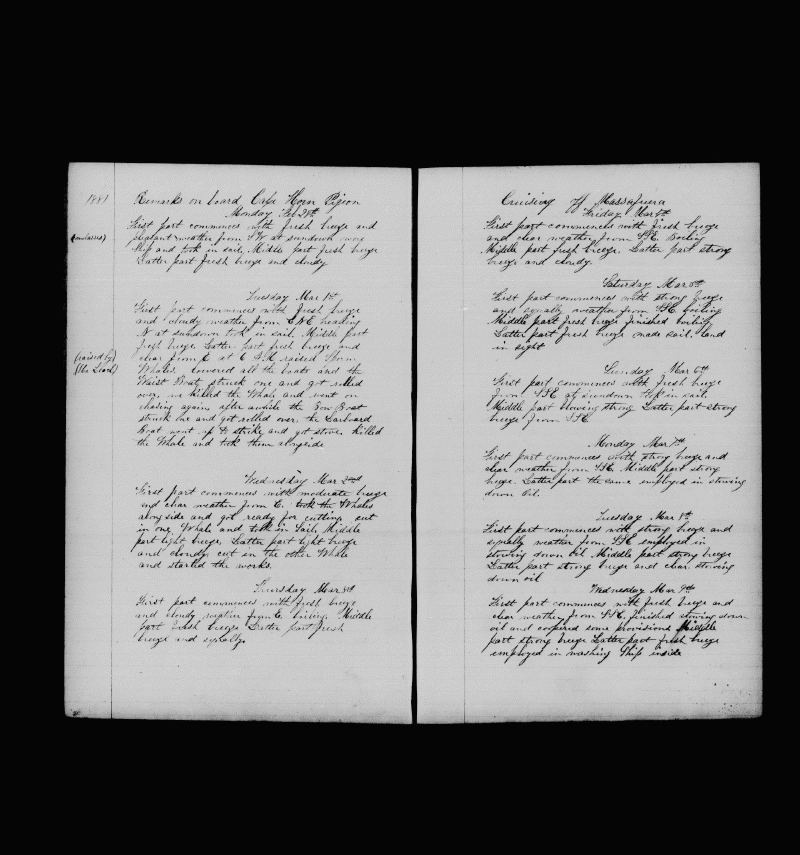 1881
Remarks on board Cape Horn Pigeon
Monday Feb 28th
First part commences with fresh breeze and
(molasses)
pleasant weather from SW at sundown wore
ship and took in sail, Middle part fresh breeze
Latter part fresh breeze and cloudy
Tuesday Mar 1st
First part commences with fresh breeze
and cloudy weather from ENE heading
N at sundown took in sail. Middle part
fresh breeze. Latter part fresh breeze and
clear from E at 6 A.M raised Sperm
(raised by)
Whales. lowered all the boats and the
Waist Boat struck one and got rolled
over, we killed the Whale and went on
chasing again after awhile the Bow Boat
struck one and got rolled over, the Larboard
Boat went up to strike and got stove, killed
the Whale and took them alongside
Wednesday Mar 2nd
First part commences with moderate breeze
and clear weather from E. took the Whales
alongside and got ready for cutting cut
in one, Whale and took in Sail, Middle
part light breeze, Latter part light breeze
and cloudy, cut in the other Whale
and started the works.
Thursday Mar 3rd
First part commences with fresh breeze
and cloudy weather from E. boiling. Middle
part fresh breeze Latter part fresh
breeze and squally.
Cruising of Massafuera
Friday Mar 4th
First part commences with fresh breeze
and clear weather from SSE. Boiling
Middle part fresh breeze. Latter part strong
breeze and cloudy.
Saturday Mar 5th
First part commences with strong breeze
and squally weather from SSE boiling
Middle part fresh breeze finished boiling
Latter part fresh breeze made sail. land
in sight
Sunday Mar 6th
First part commences with fresh breeze
from SSE at Sundown took in sail.
Middle part blowing strong Latter part strong
breeze from SSE
Monday Mar 7th
First part commences with strong breeze and
clear weather from SSE Middle part strong
breeze. Latter part the same employed in stowing
down Oil.
Tuesday Mar 8th
First part commences with strong breeze and
squally weather from SSE employed in
stowing down Oil Middle part strong breeze
Latter part strong breeze and clear. stowing
down oil
Wednesday Mar 9th
First part commences with fresh breeze and
clear weather from SSE. finished stowing down
oil and coopered some provisions Middle
part strong breeze Latter part fresh breeze
employed in washing Ship inside